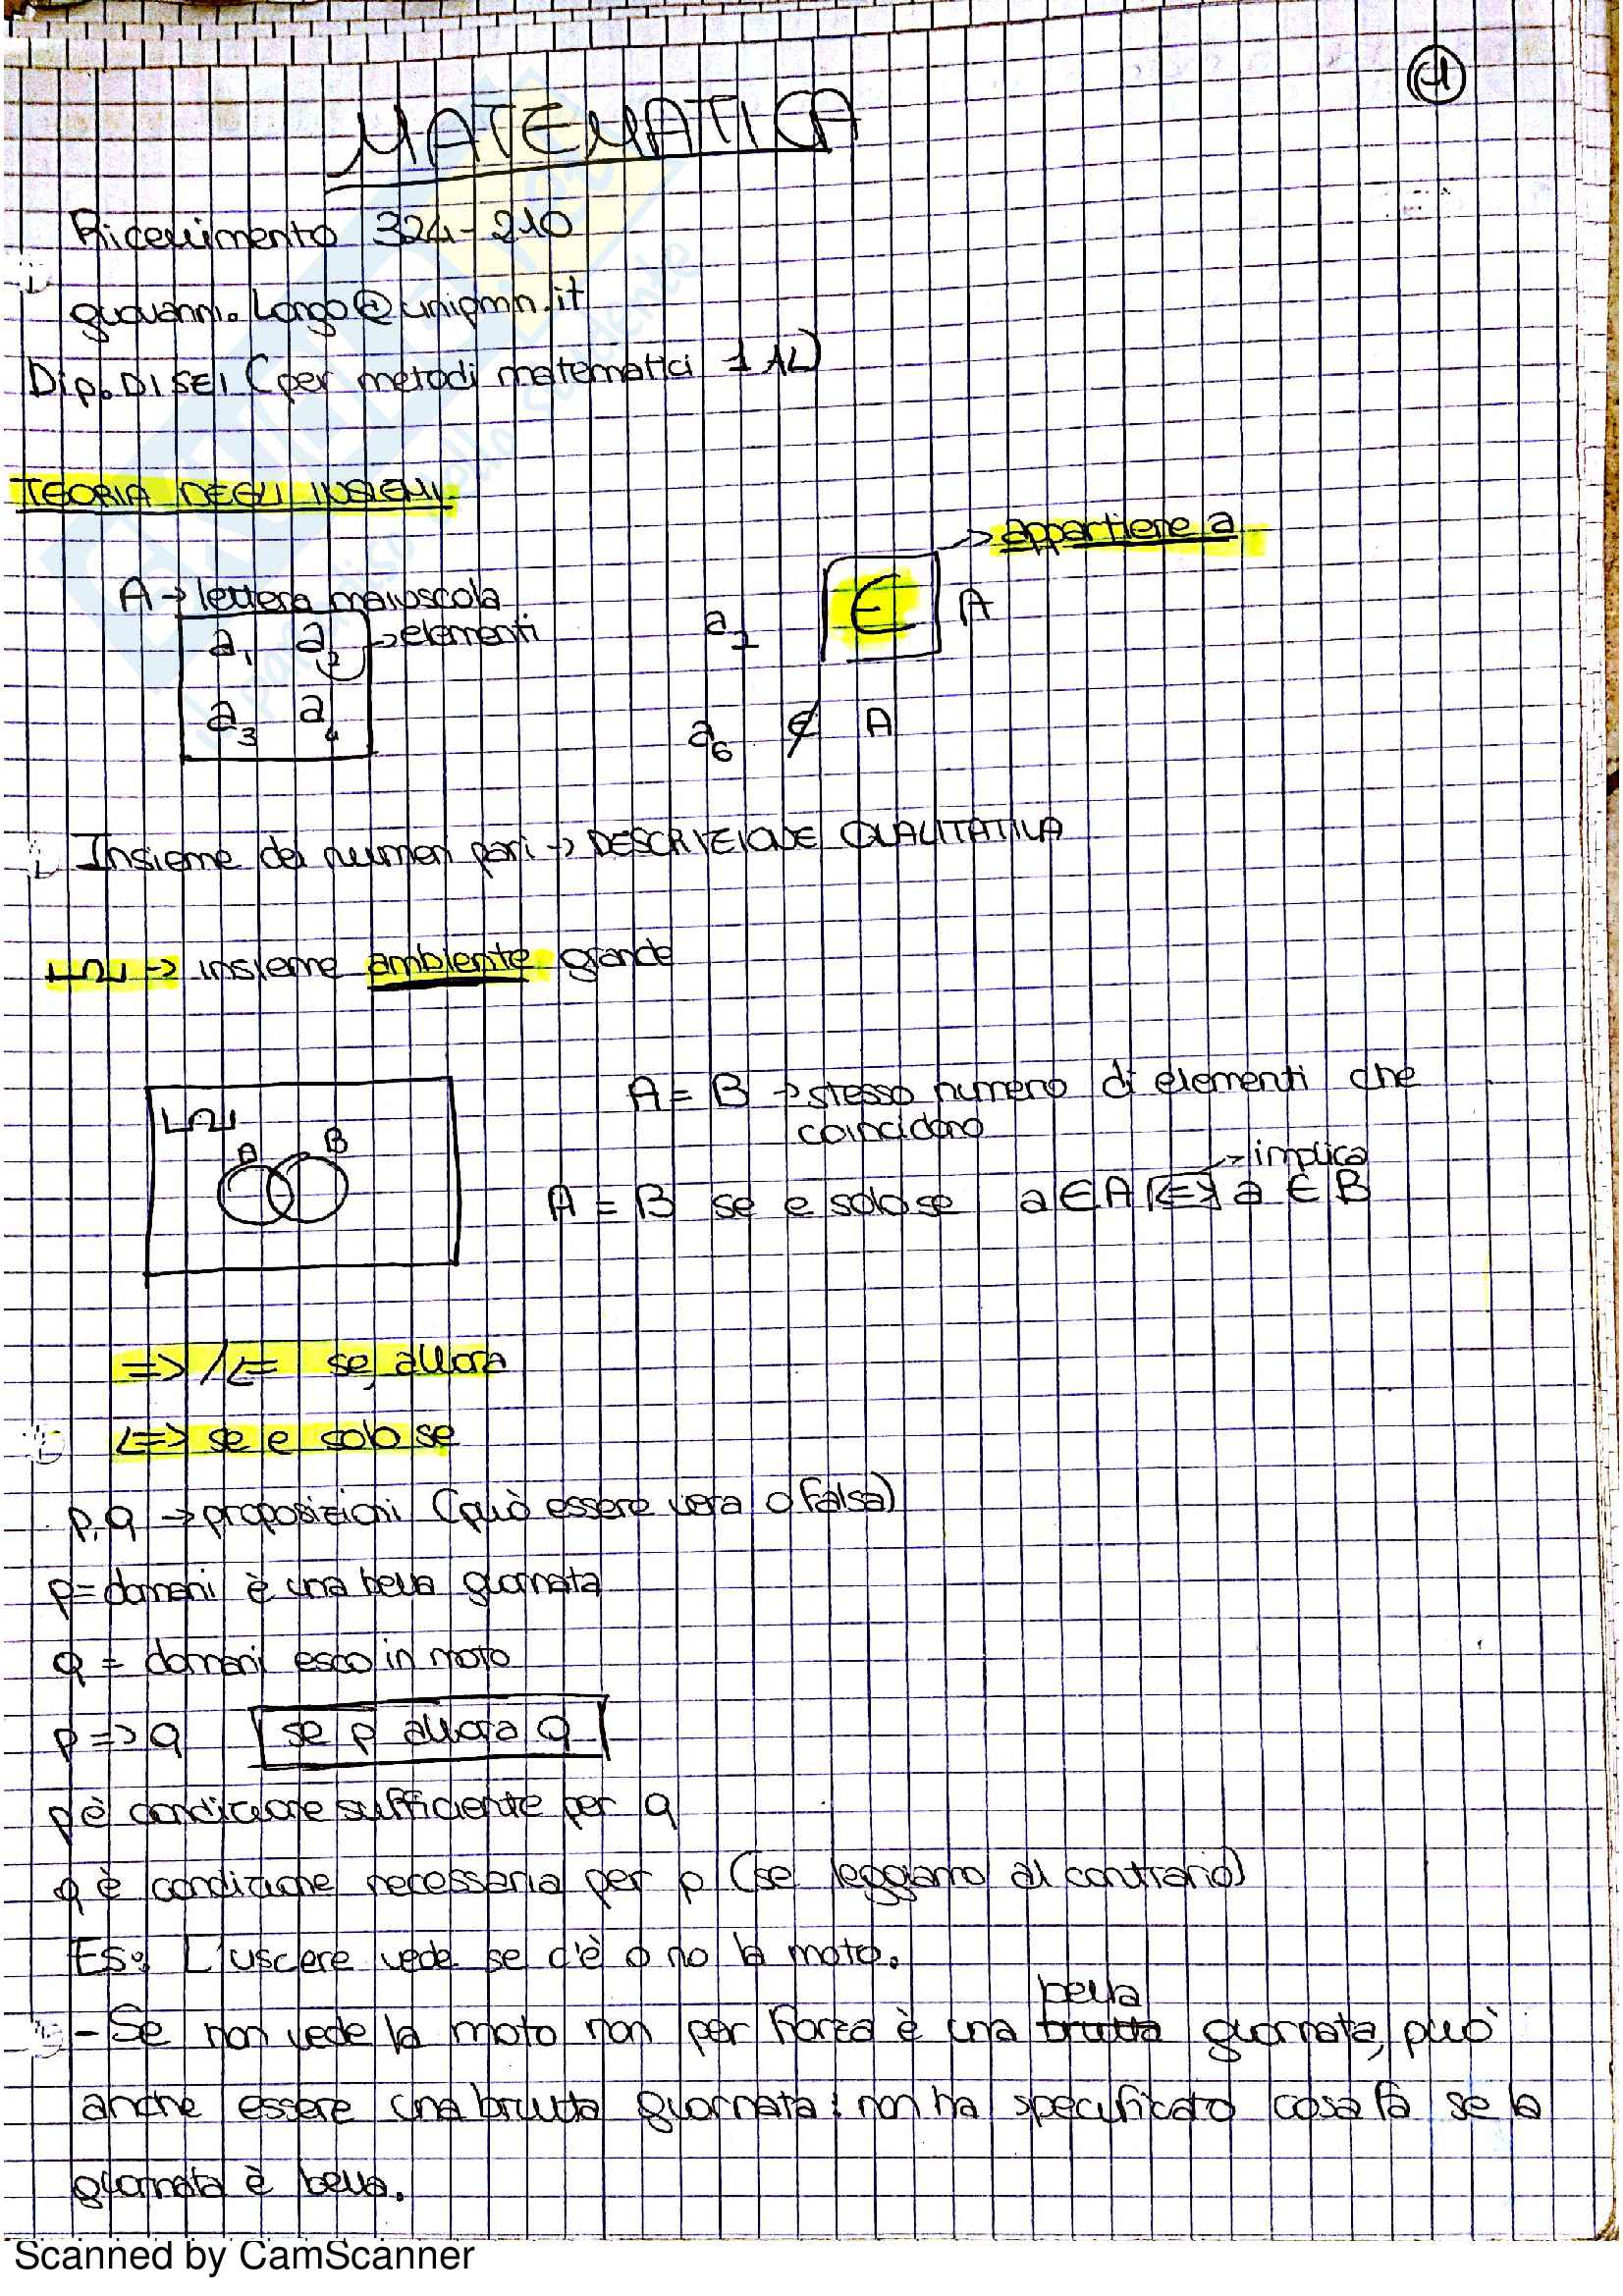 1
MATEMATICA
Ricevimento 324-210
giovanni.Longo@unipmn.it
Dip. DISEI (per metodi matematici 1 AL)
TEORIA DEGLI INSIEMI
→ appartiene a
A → lettera maiuscola
a₁ a₂ → elementi
a₃ a₄
a₁ ∈ A
a₆ ∉ A
Insieme dei numeri pari → DESCRIZIONE QUALITATIVA
Ω → insieme ambiente grande
Ω
A B
A = B → stesso numero di elementi che
coincidono
→ implica
A = B se e solo se a ∈ A <=> a ∈ B
=> / <= se, allora
<=> se e solo se
p, q → proposizioni (può essere vera o falsa)
p = domani è una bella giornata
q = domani esco in moto
p => q se p allora q
p è condizione sufficiente per q
q è condizione necessaria per p (se leggiamo al contrario)
Es: L'uscere vede se c'è o no la moto.
bella
- Se non vede la moto non per forza è una brutta giornata, può
anche essere una brutta giornata: non ha specificato cosa fa se la
giornata è bella.
Scanned by CamScanner